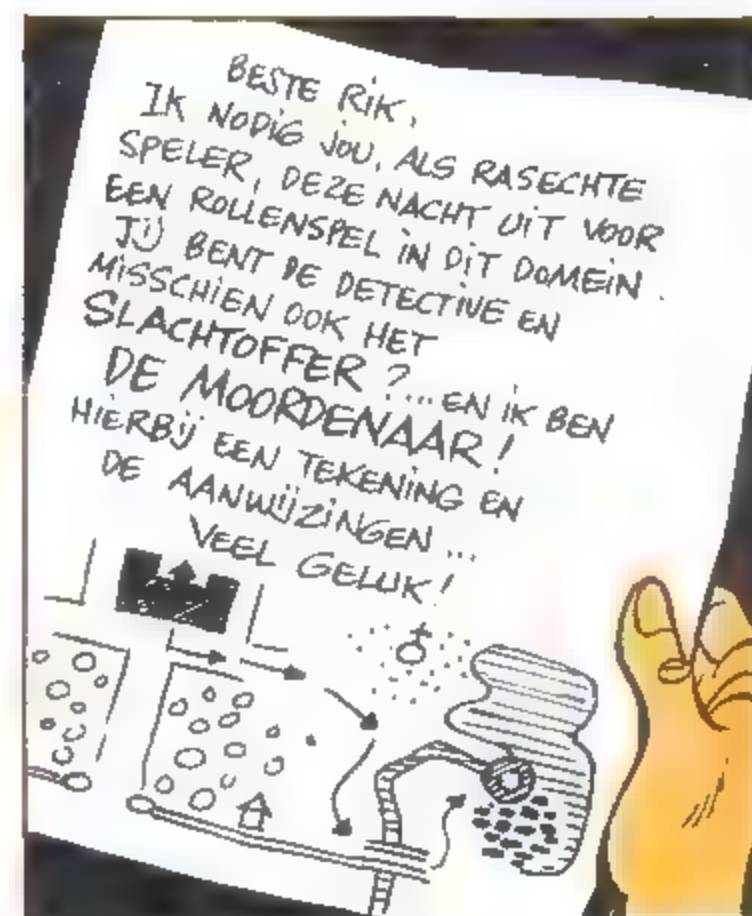 BESTE RIK,
IK NODIG JOU, ALS RASECHTE
SPELER, DEZE NACHT UIT VOOR
EEN ROLLENSPEL IN DIT DOMEIN.
JIJ BENT DE DETECTIVE EN
MISSCHIEN OOK HET
SLACHTOFFER?...EN IK BEN
DE MOORDENAAR!
HIERBIJ EEN TEKENING EN
DE AANWIJZINGEN...
VEEL GELUK!